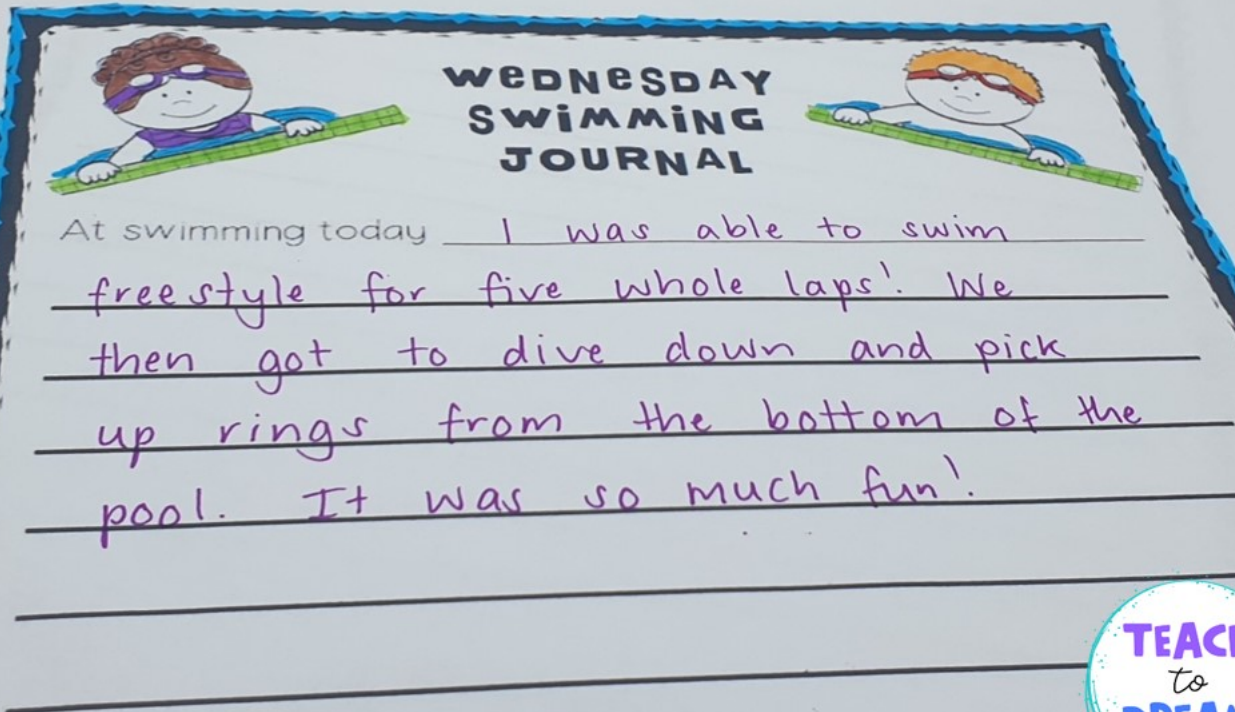 WEDNESDAY
SWIMMING
JOURNAL
At swimming today I was able to swim
freestyle for five whole laps! We
then got to dive down and pick
up rings from the bottom of the
pool. It was so much fun!
to